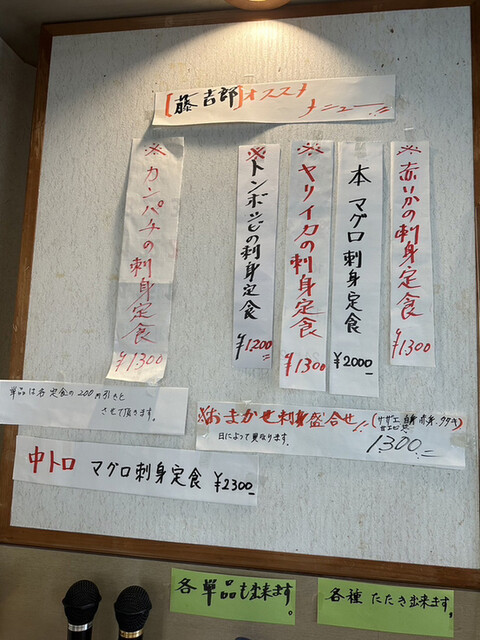 [藤吉郎]オススメ
メニュー!!
※赤いかの刺身定食 ¥1300
本マグロ刺身定食 ¥2000
※ヤリイカの刺身定食 ¥1300
※トンボシビの刺身定食 ¥1200
※カンパチの刺身定食 ¥1300
単品は各定食の200円引きと
させて頂きます。
※おまかせ刺身盛合せ!!
(サザエ 白身 赤身、タタキ)
日によって異なります。
1300
中トロ マグロ刺身定食 ¥2300
各単品も出来ます。
各種 たたき出来ます。